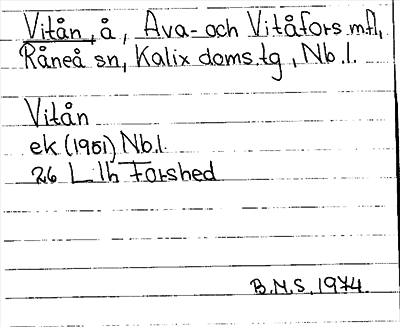 Vitån, å, Ava- och Vitåfors m.fl.,
Råneå sn, Kalix doms.tg, Nb.l.
Vitån
ek (1951) Nb.l.
26 L lh Forshed
B.M.S. 1974.